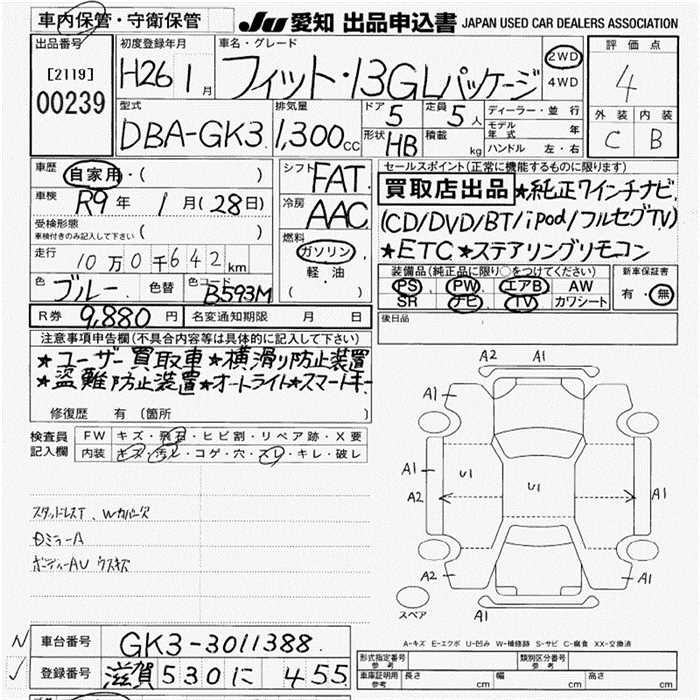 車内保管・守衛保管
JU 愛知 出品申込書 JAPAN USED CAR DEALERS ASSOCIATION
出品番号
[2119]
00239
初度登録年月
H26 1月
車名・グレード
フィット・13GLパッケージ
2WD
4WD
評価点
4
外装 内装
C B
型式
DBA-GK3
排気量
1,300cc
ドア 5
定員 5人
形状 HB
積載 kg
ディーラー・並行
モデル年式 年
ハンドル 左・右
車歴 自家用・( )
車検 R9年 1月(28日)
受検形態
車検付きのみ記入して下さい ( )
走行 10万0千642km
色 ブルー
色替
色コード B593M
シフト FAT
冷房 AAC
燃料
ガソリン
軽油
( )
セールスポイント(正常に機能するものに限ります)
買取店出品 ★純正7インチナビ
(CD/DVD/BT/iPod/フルセグTV)
★ETC ★ステアリングリモコン
装備品(純正品に限り○をつけてください)
PS PW エアB AW
SR ナビ TV カワシート
新車保証書
有・無
R券 9,880円
名変通知期限 月 日
後日品
注意事項申告欄(不具合内容等は具体的に記入して下さい)
★ユーザー買取車★横滑り防止装置
★盗難防止装置★オートライト★スマートキー
修復歴 有(箇所 )
検査員記入欄
FW キズ・飛石・ヒビ割・リペア跡・X要
内装 キズ・汚レ・コゲ・穴・スレ・キレ・破レ
スタッドレスT、Wカバー欠
DミラーA
ボディーAU ウスキズ
A2 A1
A1 A1
A1 U1 U1 A1
A2
A2 A1
スペア A1
A-キズ E-エクボ U-凹み W-補修跡 S-サビ C-腐食 XX-交換済
N 車台番号 GK3-3011388
登録番号 滋賀530に 455
形式指定番号 参考
類別区分番号 参考
車庫証明用 参考
長さ cm 幅 cm 高さ cm